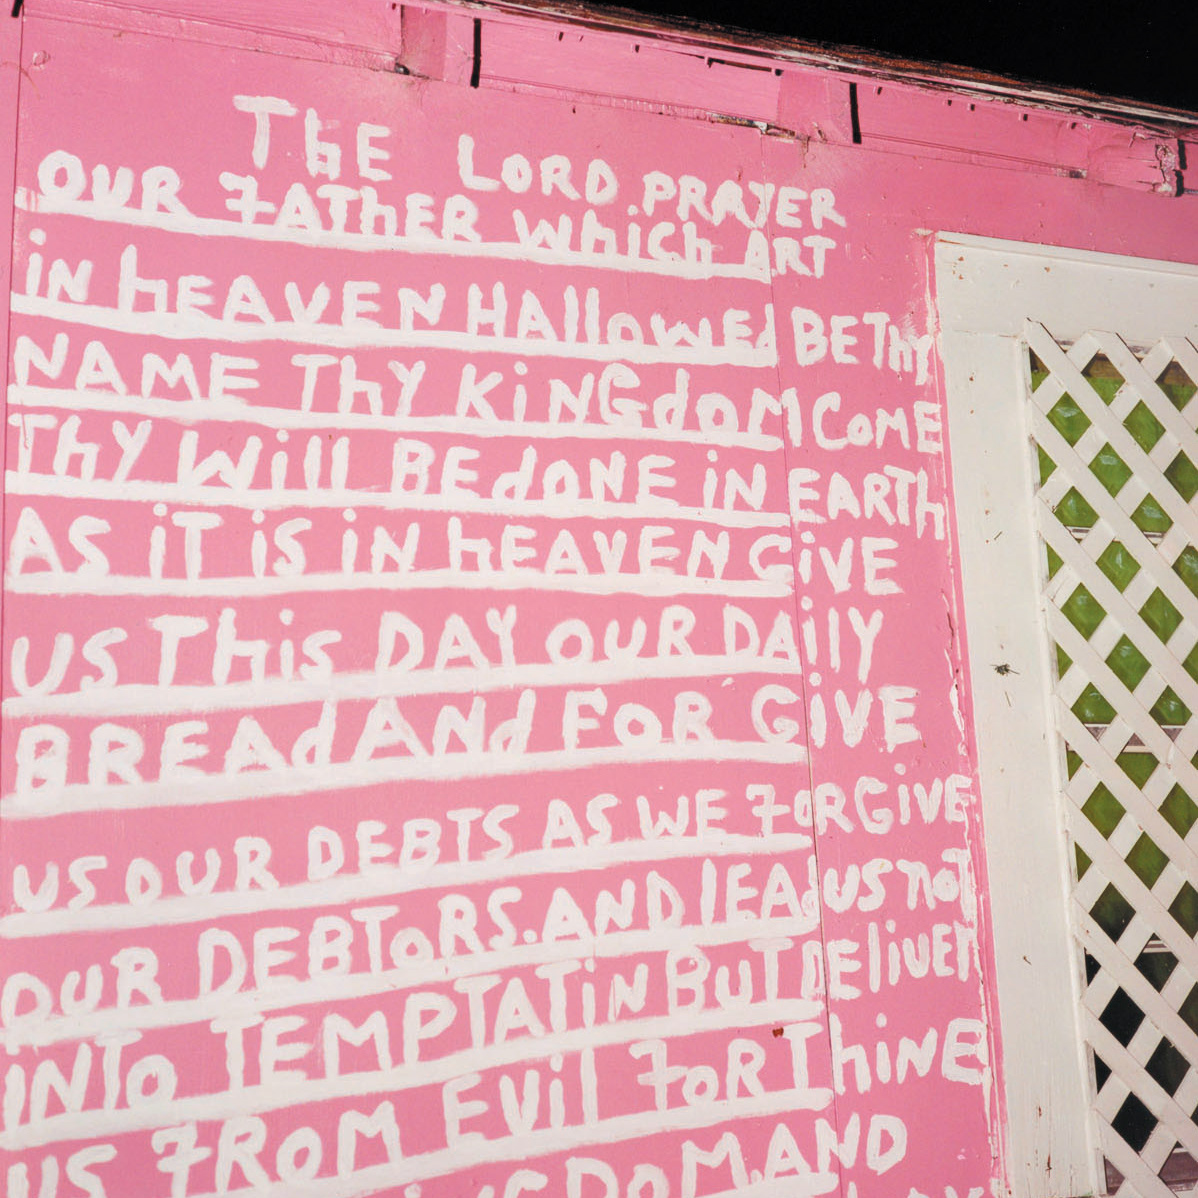 The LORD PRAYER
OUR FATHER Which ART
iN hEAVEN HAllowEd BE Thy
NAME Thy KiNGdOM COME
Thy Will BE dONE iN EARTh
AS iT iS iN hEAVEN GiVE
US This DAY OUR DAily
BREAd ANd FOR GiVE
US OUR DEBTS AS WE FORGiVE
OUR DEBTORS. AND lEAd US NOT
iNTO TEMPTATiN BUT DEliVER
US FROM EVil FOR ThiNE
AND